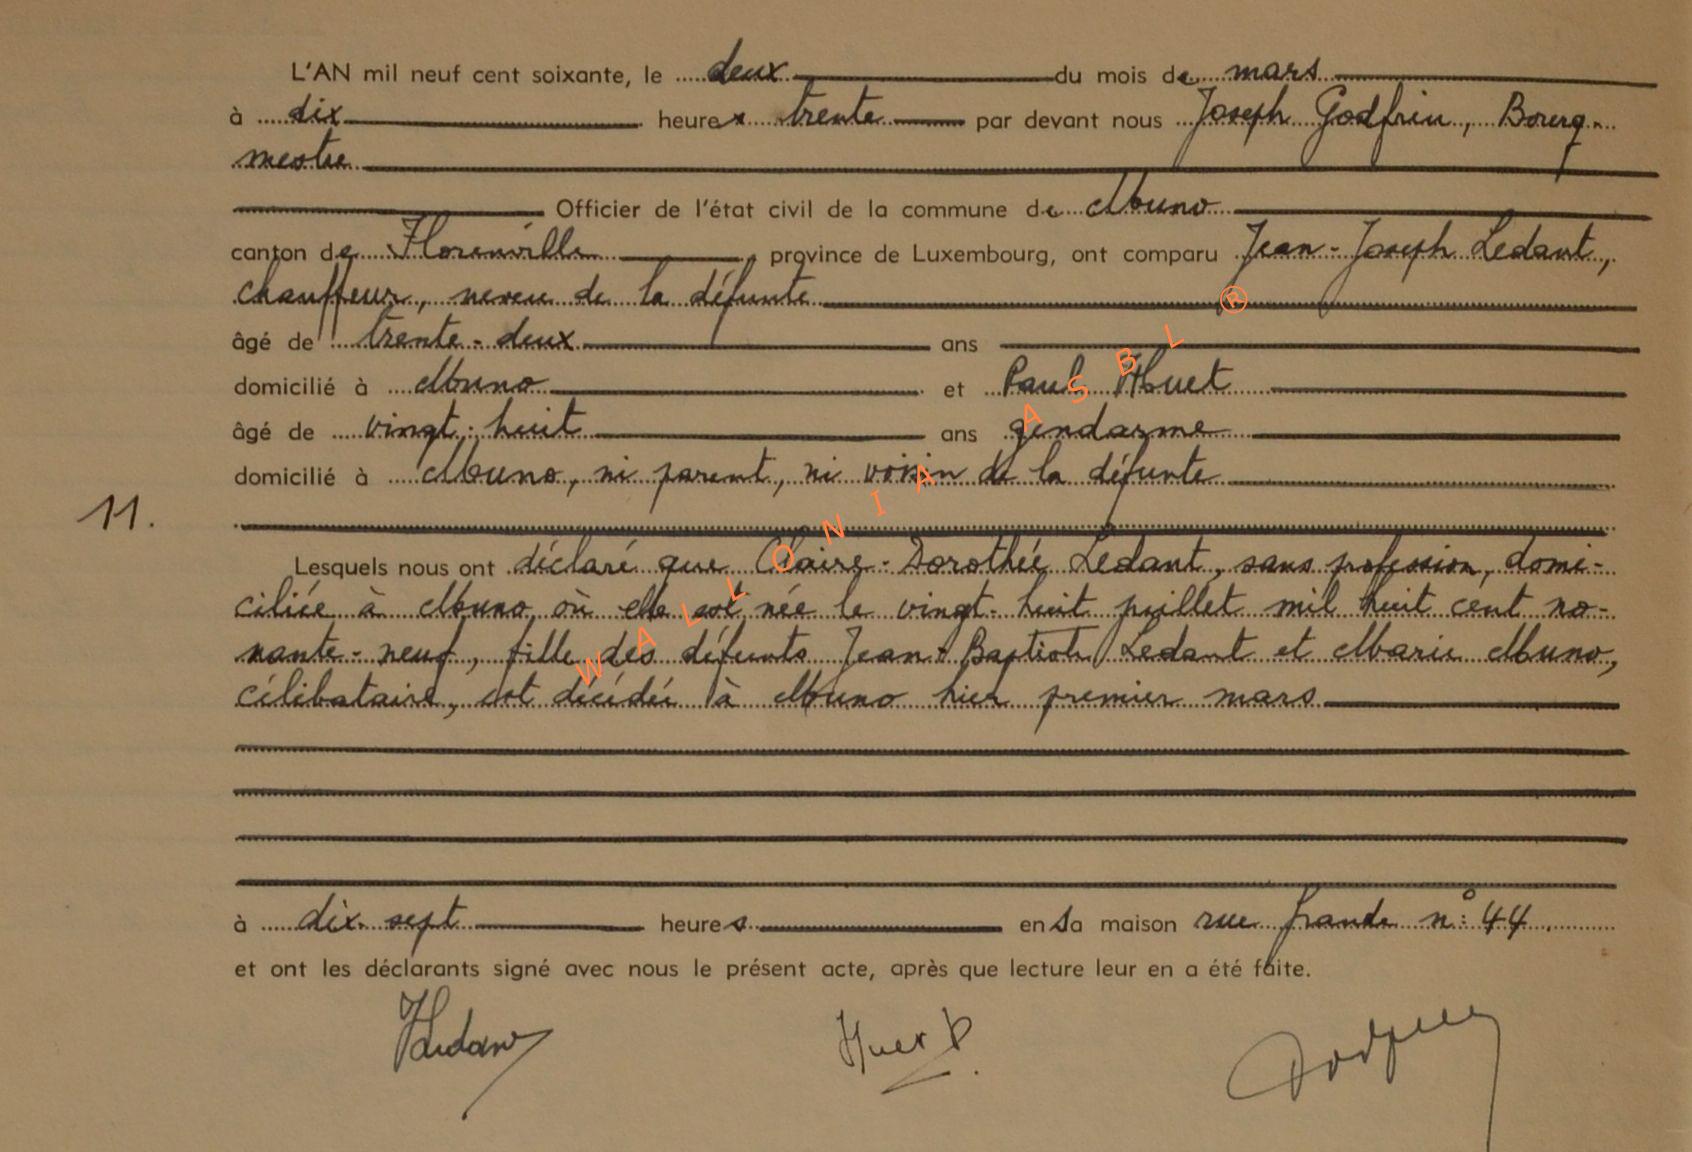 L'AN mil neuf cent soixante, le deux du mois de mars
à dix heures trente par devant nous Joseph Godfrin, Bourg-
mestre
Officier de l'état civil de la commune de Muno
canton de Florenville, province de Luxembourg, ont comparu Jean-Joseph Ledant,
chauffeur, neveu de la défunte
âgé de trente-deux ans
domicilié à Muno et Paul Huet
âgé de vingt-huit ans gendarme
domicilié à Muno, ni parent, ni voisin de la défunte
11.
Lesquels nous ont déclaré que Claire-Dorothée Ledant, sans profession, domi-
ciliée à Muno où elle est née le vingt-huit juillet mil huit cent no-
nante-neuf, fille des défunts Jean-Baptiste Ledant et Marie Muno,
célibataire, est décédée à Muno hier premier mars
à dix-sept heures en sa maison rue grande n° 44.
et ont les déclarants signé avec nous le présent acte, après que lecture leur en a été faite.
Huet P.
Godfrin
WALLONIA ASBL ®